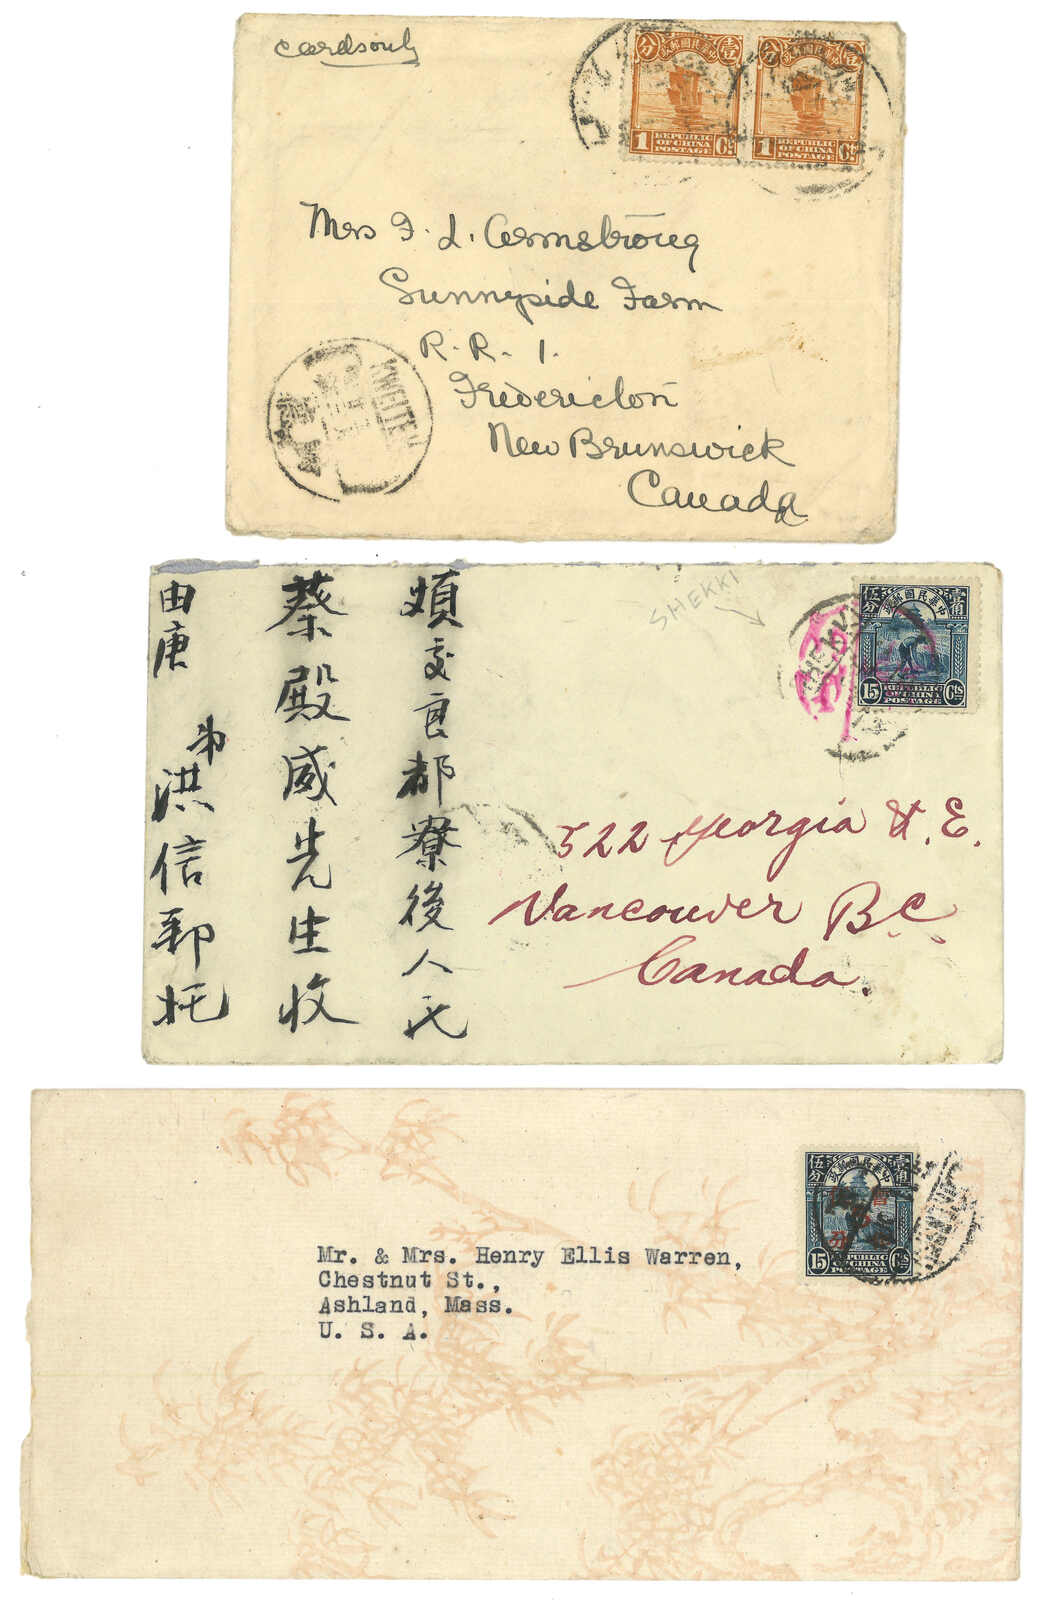 Cards only
分 政郵國民華中 壹
1 REPUBLIC OF CHINA POSTAGE Cts
分 政郵國民華中 壹
1 REPUBLIC OF CHINA POSTAGE Cts
Mrs F. L. Armstrong
Sunnyside Farm
R. R. 1.
Fredericton
New Brunswick
Canada
KWEITEH
SHEKKI
伍分 政郵國民華中 壹角
15 REPUBLIC OF CHINA POSTAGE Cts
煩交良都寮後人氏
蔡殿威先生收
由唐
弟洪信郵托
522 Georgia St. E.
Vancouver B.C.
Canada.
伍分 政郵國民華中 壹角
15 REPUBLIC OF CHINA POSTAGE Cts
Mr. & Mrs. Henry Ellis Warren,
Chestnut St.,
Ashland, Mass.
U. S. A.